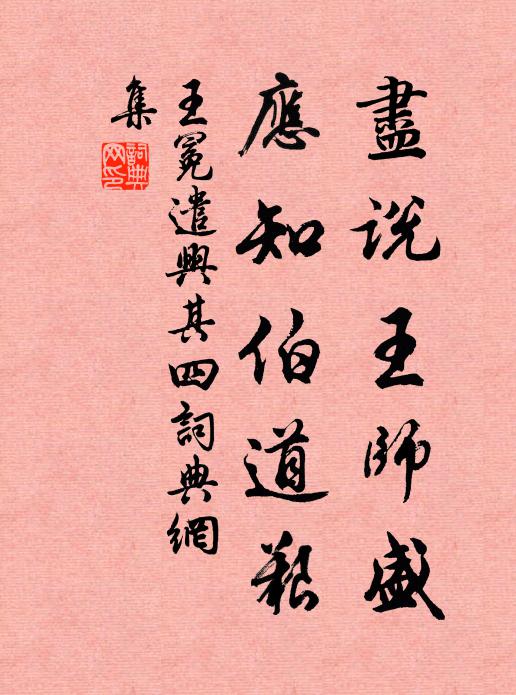 盡說王師盛
應知伯道艱
王冕遣興其四詞典網
集
詞典
網印